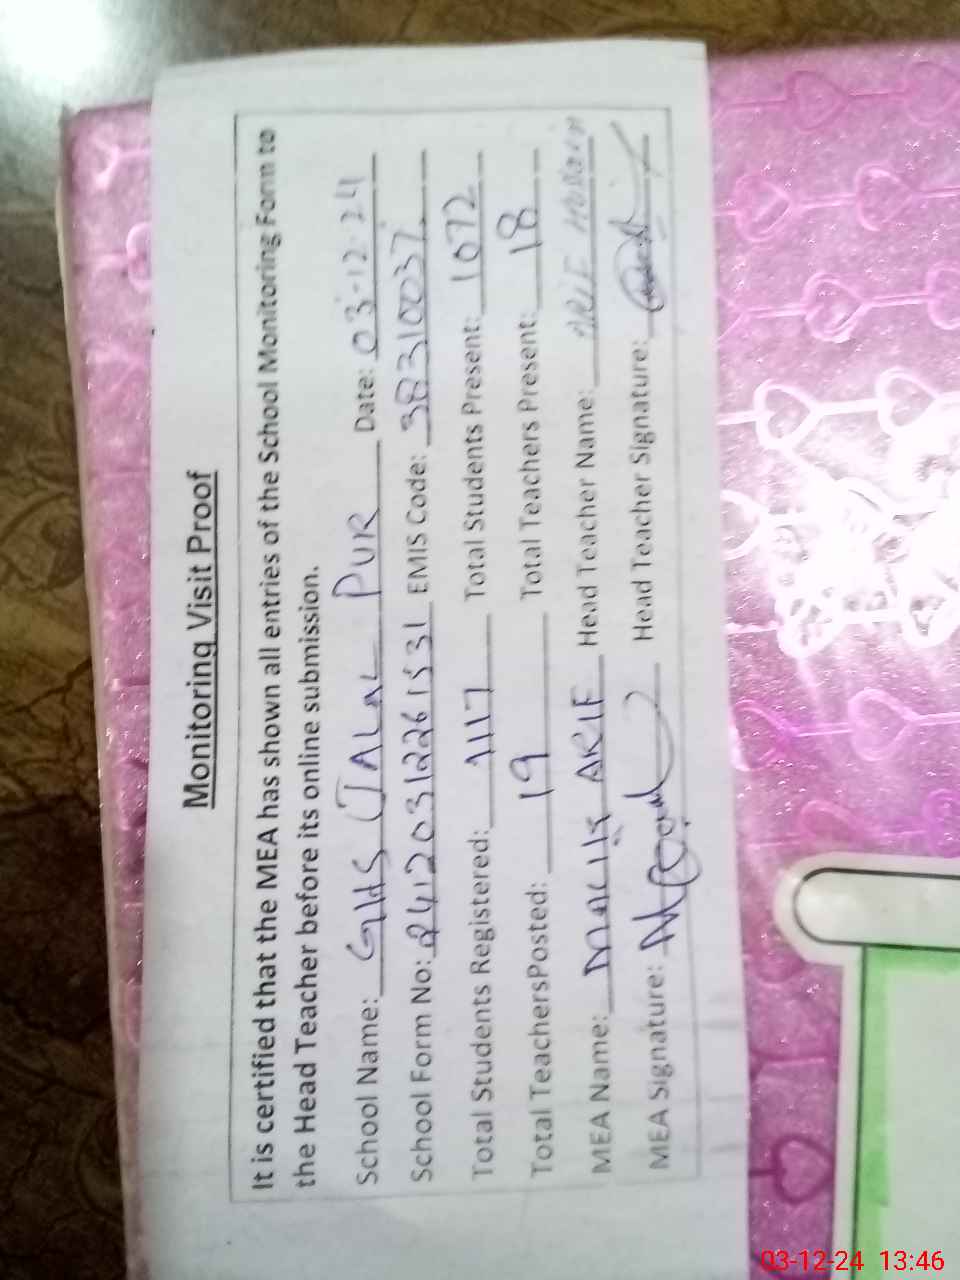 Monitoring Visit Proof
It is certified that the MEA has shown all entries of the School Monitoring Form to
the Head Teacher before its online submission.
School Name: GHS JALAL PUR Date: 03-12-24
School Form No: 24120312261531 EMIS Code: 38310037
Total Students Registered: 1117 Total Students Present: 1072
Total TeachersPosted: 19 Total Teachers Present: 18
MEA Name: MALIK ARIF Head Teacher Name: ARIF
MEA Signature: Head Teacher Signature:
03-12-24 13:46